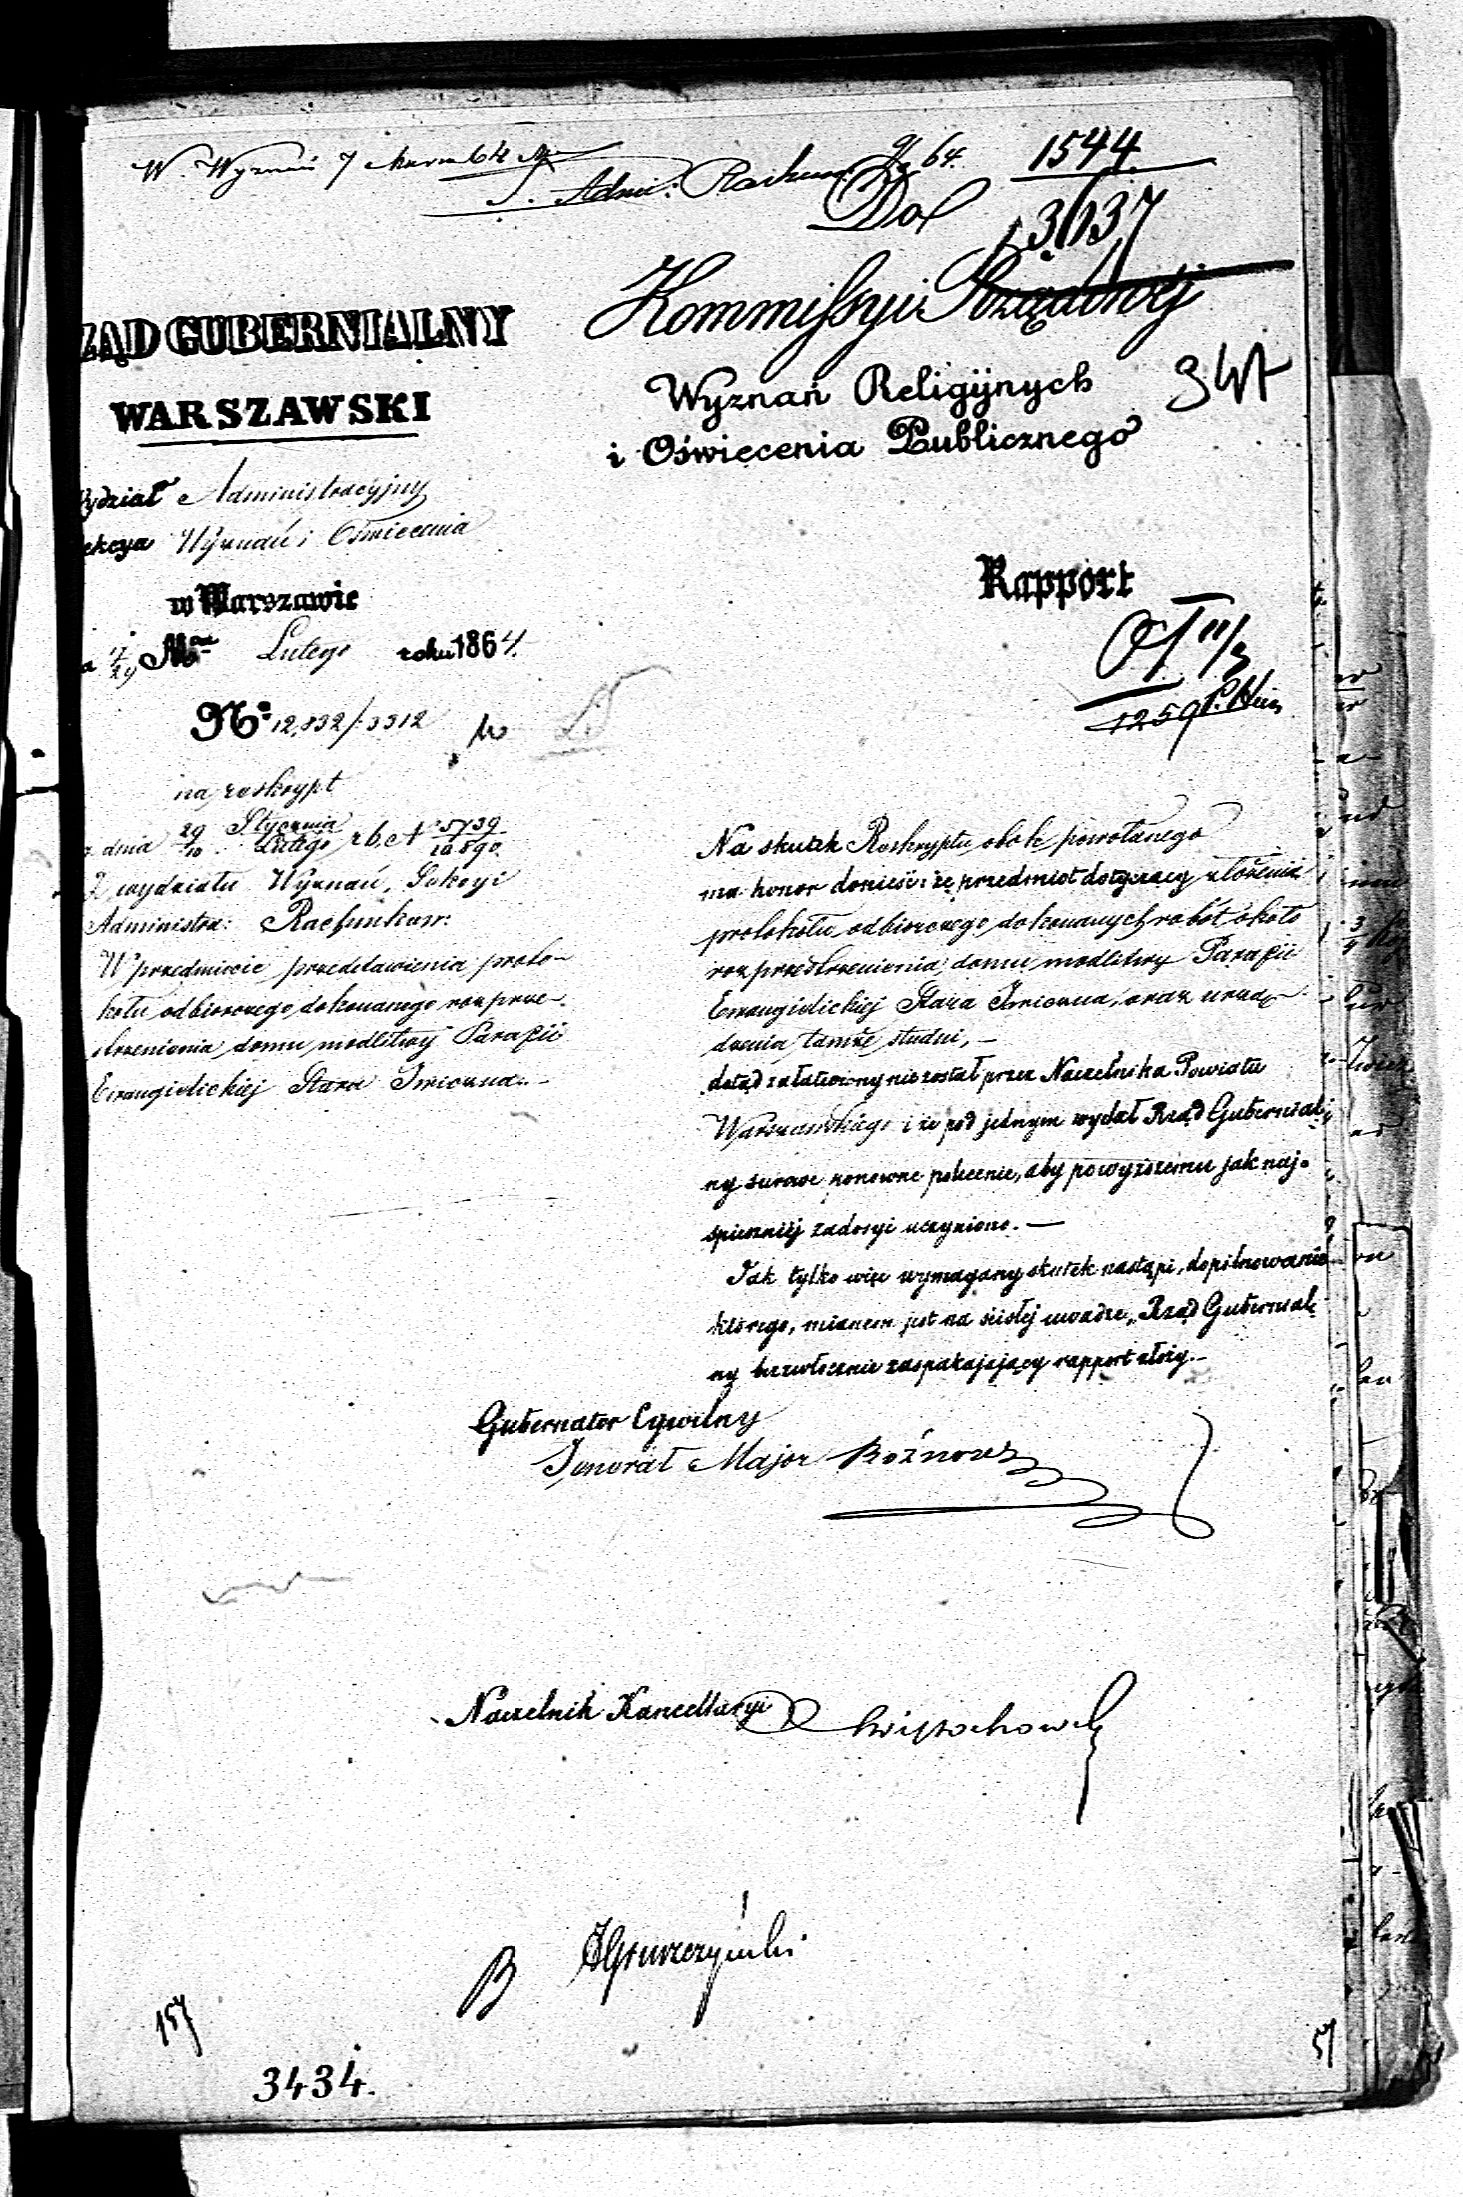 W. Wyznań 7 Marca 64
S. Admi: Rachun. 9/3 64.
1544
3637
Do
Kommissyi Rządowéj
Wyznań Religijnych
i Oświecenia Publicznego
ZĄD GUBERNIALNY
WARSZAWSKI
ydział Administracyjny
ekcya Wyznań i Oświecenia
w Warszawie
Lutego roku 1864.
Rapport
11/3
1259
No 12,832/3312
na reskrypt
z dnia 29/10 Stycznia/Lutego r.b. N 5739/10590
Z wydziału Wyznań, Sekcyi
Administra: Rachunkow:
W przedmiocie przedstawienia proto-
kołu odbiorczego dokonanego rozprze-
strzenienia domu modlitwy Parafii
Ewangielickiej Stara Iwiczna.-
Na skutek Reskryptu obok powołanego
ma honor donieść: że przedmiot dotyczący złożenia
protokołu odbiorczego dokonanych robót około
rozprzestrzenienia domu modlitwy Parafii
Ewangielickiej Stara Iwiczna, oraz urzą-
dzenia tamże studni, —
dotąd załatwiony nie został przez Naczelnika Powiatu
Warszawskiego i że pod jednym wydał Rząd Gubernial-
ny surowe ponowne polecenie, aby powyższemu jak naj-
spieszniéj zadosyć uczyniono. —
Jak tylko więc wymagany skutek nastąpi, dopilnowanie
którego, mianem jest na ścisłéj uwadze, Rząd Gubernial-
ny bezwłocznie zaspakajający rapport złoży.—
Gubernator Cywilny
Jenerał Major Rożnow
Naczelnik Kancellaryi Świętochowski
B
157
3434.